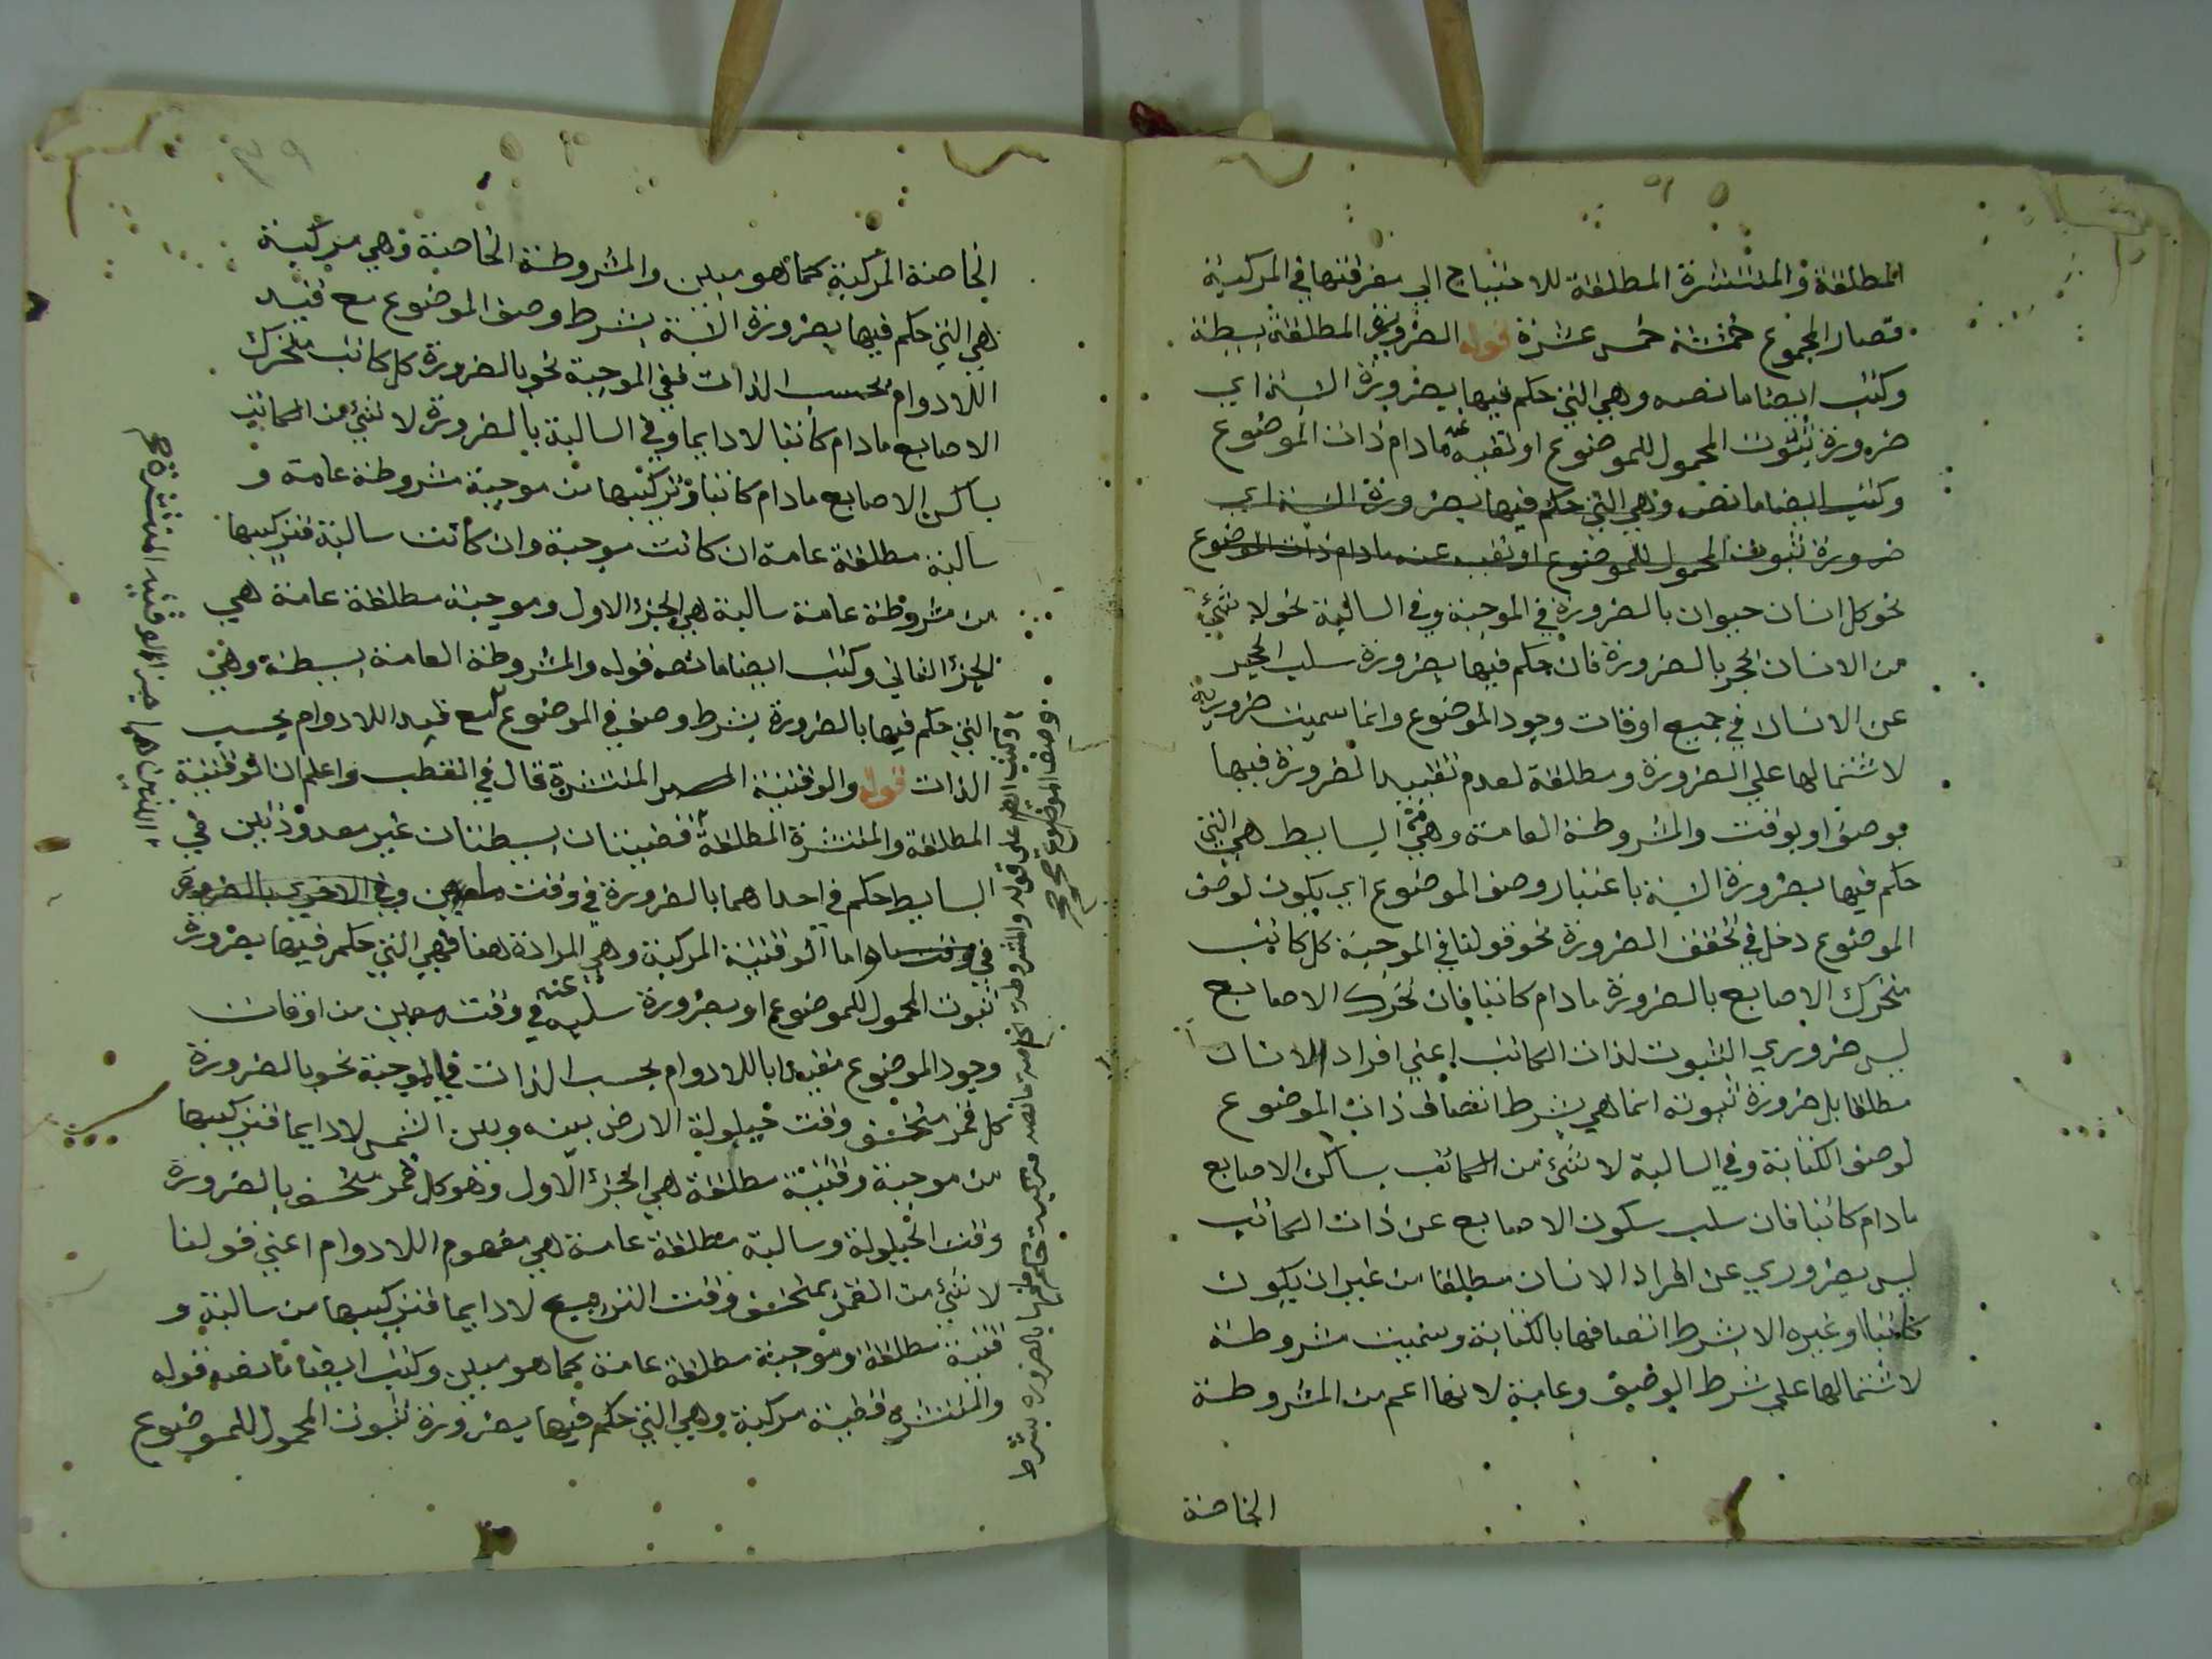 المطلقة والمنتشرة المطلقة للاحتياج الى معرفتها في المركبة
فصار المجموع خمسة خمس عشرة قوله الضرورية المطلقة بسيطة
وكتب ايضا ما نصه وهي التي حكم فيها بضرورة النسبة اي
ضرورة ثبوت المحمول للموضوع او نفيه عنه مادام ذات الموضوع
وكتب ايضا ما نصه وهي التي حكم فيها بضرورة النسبة اي
ضرورة ثبوت المحمول للموضوع او نفيه عنه مادام ذات الموضوع
نحو كل انسان حيوان بالضرورة في الموجبة وفي السالبة نحو لا شيء
من الانسان الحجر بالضرورة فان حكم فيها بضرورة سلب الحجر
عن الانسان في جميع اوقات وجود الموضوع وانما سميت ضرورية
لاشتمالها علي الضرورة ومطلقة لعدم تقييد الضرورة فيها
بوصف او بوقت والمشروطة العامة وهي من البسايط هي التي
حكم فيها بضرورة النسبة باعتبار وصف الموضوع اي يكون لوصف
الموضوع دخل في تحقق الضرورة نحو قولنا في الموجبة كل كاتب
متحرك الاصابع بالضرورة مادام كاتبا فان تحرك الاصابع
ليس ضروري الثبوت لذات الكاتب اعني افراد الانسان
مطلقا بل ضرورة ثبوته انما هي بشرط اتصاف ذات الموضوع
لوصف الكتابة وفي السالبة لا شيء من الكاتب بساكن الاصابع
مادام كاتبا فان سلب سكون الاصابع عن ذات الكاتب
ليس بضروري عن افراد الانسان مطلقا من غير ان يكون
كاتبا او غيره الا بشرط اتصافها بالكتابة وسميت مشروطة
لاشتمالها علي شرط الوصف وعامة لانها اعم من المشروطة
الخاصة
الخاصة المركبة كما هو مبين والمشروطة الخاصة وهي مركبة
هي التي حكم فيها بضرورة النسبة بشرط وصف الموضوع مع قيد
اللادوام بحسب الذات ففي الموجبة نحو بالضرورة كل كاتب متحرك
الاصابع مادام كاتبا لا دايما وفي السالبة بالضرورة لا شيء من الكاتب
بساكن الاصابع مادام كاتبا وتركيبها من موجبة مشروطة عامة و
سالبة مطلقة عامة ان كانت موجبة وان كانت سالبة فتركيبها
من مشروطة عامة سالبة هي الجزء الاول وموجبة مطلقة عامة هي
الجزء الثاني وكتب ايضا ما نصه قوله والمشروطة العامة بسيطة وهي
التي حكم فيها بالضرورة بشرط وصف في الموضوع مع قيد اللادوام بحسب
الذات قوله والوقتية المنتشرة قال في القطب واعلم ان الوقتية
المطلقة والمنتشرة المطلقة قضيتان بسيطتان غير معدودتين في
البسايط حكم في احداهما بالضرورة في وقت معين وفي الاخرى بالضرورة
في وقت ما واما الوقتية المركبة وهي المرادة هنا فهي التي حكم فيها بضرورة
ثبوت المحمول للموضوع او بضرورة سلبه عنه في وقت معين من اوقات
وجود الموضوع مقيدا باللادوام بحسب الذات في الموجبة نحو بالضرورة
كل قمر منخسف وقت حيلولة الارض بينه وبين الشمس لا دايما فتركيبها
من موجبة وقتية مطلقة هي الجزء الاول وهو كل قمر منخسف بالضرورة
وقت الحيلولة وسالبة مطلقة عامة هي مفهوم اللادوام اعني قولنا
لا شيء من القمر بمنخسف وقت التربيع لا دايما فتركيبها من سالبة و
قتية مطلقة وموجبة مطلقة عامة كما هو مبين وكتب ايضا ما نصه قوله
والمنتشرة قضية مركبة وهي التي حكم فيها بضرورة ثبوت المحمول للموضوع
وكتب ايضا علي قوله والمشروطة الخاصة ما نصه مركبة حكم فيها بالضرورة بشرط
وصف الموضوع صح
اللتين هما جزء الوقتية المنتشرة صح